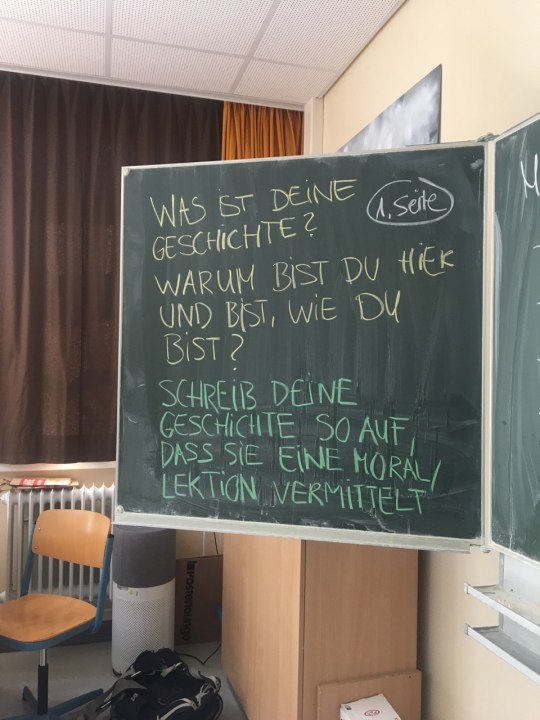 WAS IST DEINE
GESCHICHTE?
1. Seite
WARUM BIST DU HIER
UND BIST, WIE DU
BIST?
SCHREIB DEINE
GESCHICHTE SO AUF,
DASS SIE EINE MORAL/
LEKTION VERMITTELT
M